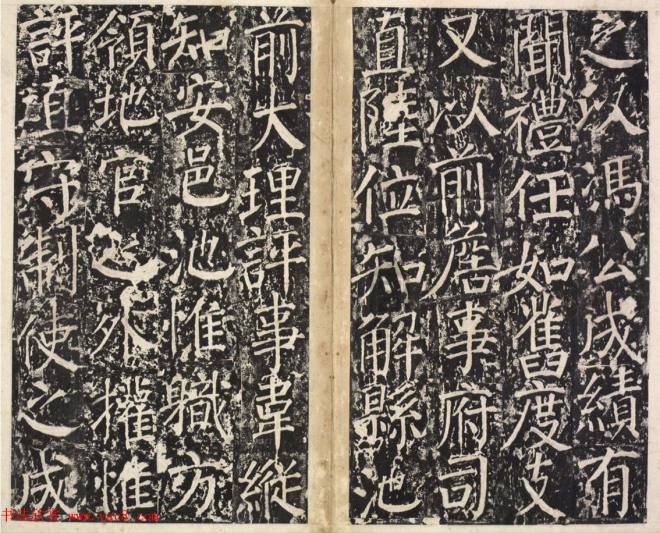 之以馮公成績有
聞禮任如舊度支
又以前詹事府司
直陸位知解縣池
前大理評事韋縱
知安邑池惟職方
領地官之外攉惟
評直守制使之成
www.